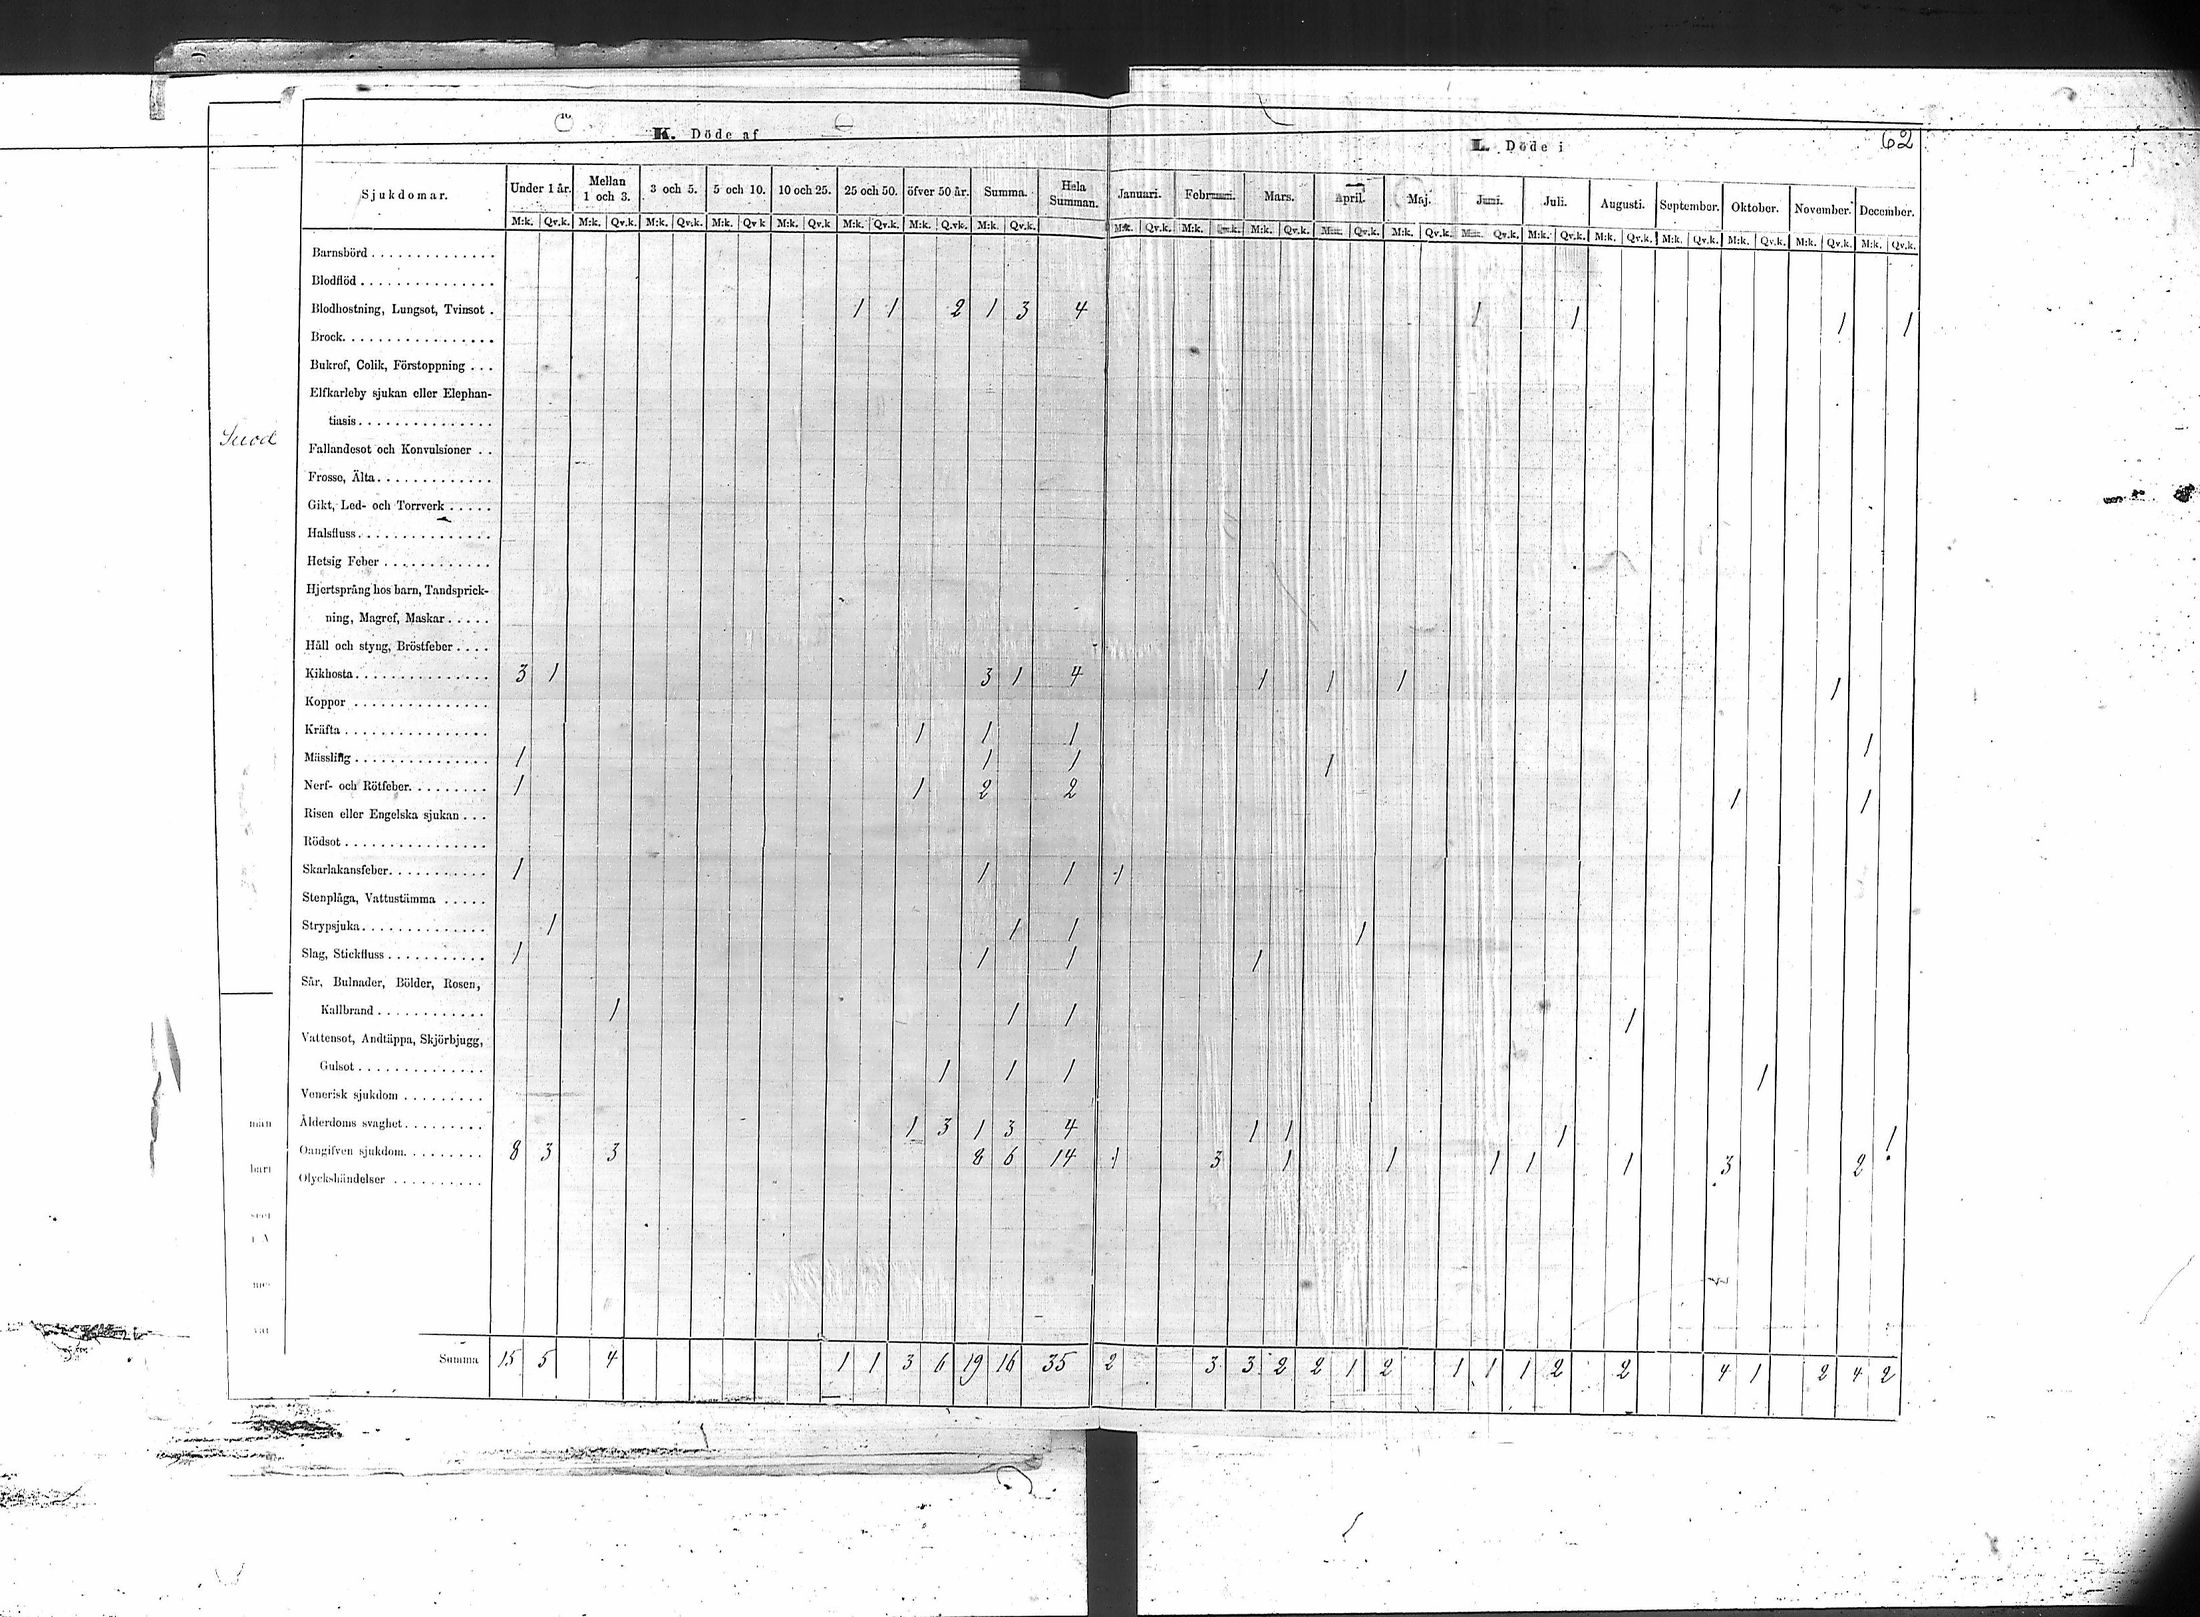 62
K. Döde af
L. Döde i
Sjukdomar. Under 1 år. Mellan 1 och 3. 3 och 5. 5 och 10. 10 och 25. 25 och 50. öfver 50 år. Summa. Hela Summan. Januari. Februari. Mars. April. Maj. Juni. Juli. Augusti. September. Oktober. November. December.
M:k. Qv.k. M:k. Qv.k. M:k. Qv.k. M:k. Qv k M:k. Qv.k M:k. Qv.k. M:k. Q.vk. M:k. Qv.k. M:k. Qv.k. M:k. Qv.k. M:k. Qv.k. M:k. Qv.k. M:k. Qv.k. M:k. Qv.k. M:k. Qv.k. M:k. Qv.k. M:k. Qv.k. M:k. Qv.k. M:k. Qv.k. M:k. Qv.k.
Barnsbörd
Blodflöd
Blodhostning, Lungsot, Tvinsot . 1 1 2 1 3 4 1 1 1 1
Brock
Bukref, Colik, Förstoppning . . .
Elfkarleby sjukan eller Elephan-
tiasis
Fallandesot och Konvulsioner . .
Frosse, Älta
Gikt, Led- och Torrverk
Halsfluss
Hetsig Feber
Hjertsprång hos barn, Tandsprick-
ning, Magref, Maskar
Håll och styng, Bröstfeber
Kikhosta 3 1 3 1 4 1 1 1 1
Koppor
Kräfta 1 1 1 1
Mässling 1 1 1 1
Nerf- och Rötfeber 1 1 2 2 1 1
Risen eller Engelska sjukan . . .
Rödsot
Skarlakansfeber 1 1 1 1
Stenplåga, Vattustämma
Strypsjuka 1 1 1 1
Slag, Stickfluss 1 1 1 1
Sår, Bulnader, Bölder, Rosen,
Kallbrand 1 1 1 1
Vattensot, Andtäppa, Skjörbjugg,
Gulsot 1 1 1 1
Venerisk sjukdom
Ålderdoms svaghet 1 3 1 3 4 1 1 1 1
Oangifven sjukdom 8 3 3 8 6 14 1 3 1 1 1 1 1 3 2
Olyckshändelser
Summa 15 5 4 1 1 3 6 19 16 35 2 3 3 2 2 1 2 1 1 1 2 2 4 1 2 4 2